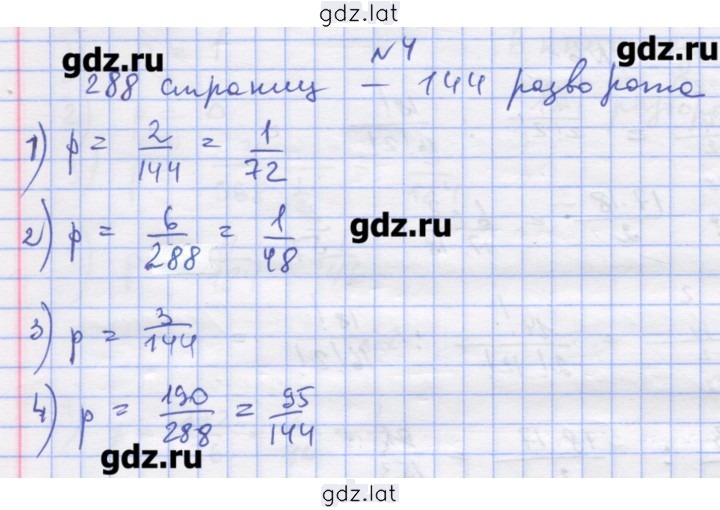 gdz.lat
gdz.ru gdz.ru
№ 4
288 страниц – 144 разворота
1) p = 2/144 = 1/72
2) p = 6/288 = 1/48
gdz.ru
3) p = 3/144
4) p = 190/288 = 95/144
gdz.ru
gdz.lat